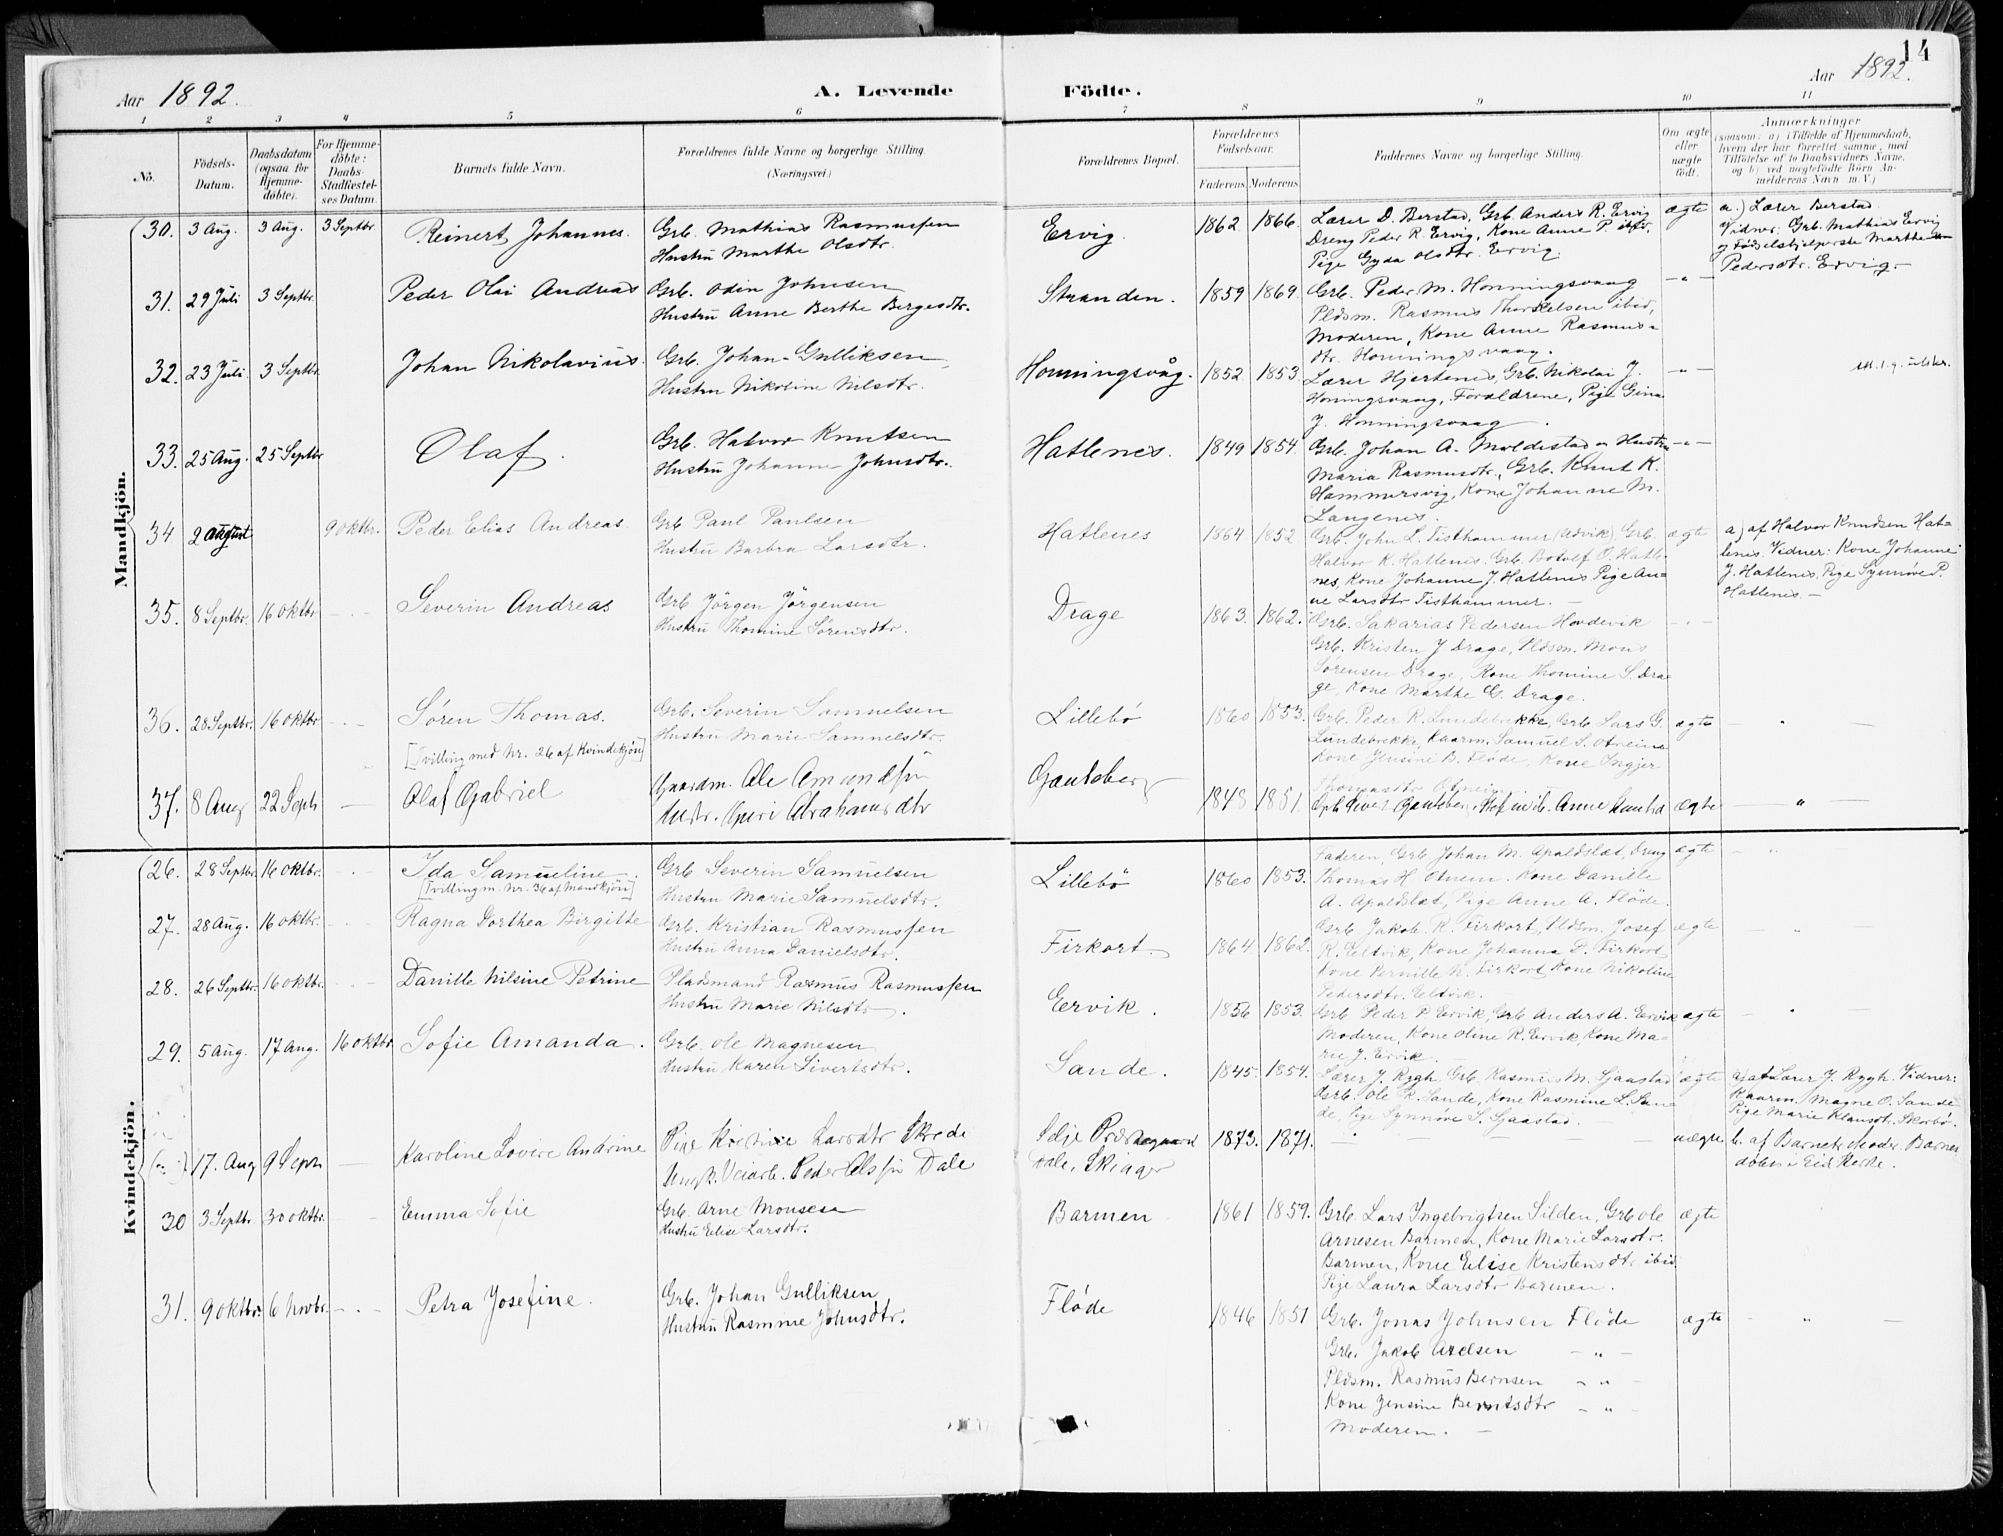 14
Aar 1892.
A. Levende Födte.
Aar 1892.
1 2 3 4 5 6 7 8 9 10 11
No. Födsels-Datum. Daabsdatum (ogsaa for Hjemmedöbte). For Hjemmedöbte: Daabs-Stadfæstelses Datum. Barnets fulde Navn. Forældrenes fulde Navne og borgerlige Stilling. (Næringsvei.) Forældrenes Bopæl. Forældrenes Födselsaar. Faderens Moderens. Faddernes Navne og borgerlige Stilling. Om ægte eller uægte födt. Anmærkninger (saasom: a) i Tilfælde af Hjemmedaab, hvem der har forrettet samme, med Tilföielse af to Daabsvidners Navne, og b) ved uægtefödte Börn Anmelderens Navn m. V.)
Mandkjön.
30. 3 Aug. 3 Aug. 3 Septbr. Reinert Johannes. Grb. Mathias Rasmussen Ervig. 1862 1866. Lærer D. Berstad, Grb. Anders R. Ervig ægte a.) Lærer Berstad.
Hustru Marthe Olsdtr. Dreng Peder R. Ervig, Kone Anne P Vidner: Grb. Mathias Ervig
Pige Gyda Olsdtr. Ervig. og Fødselshjelperske Marthe
Pedersdtr. Ervig.
31. 29 Juli 3 Septbr. Peder Olai Andreas Grb. Odin Johnsen Stranden. 1859 1869. Grb. Peder M. Honningsvaag — " —
Hustru Anne Berthe Bergesdtr. Pldsm. Rasmus Thorkelsen ibid,
Moderen, Kone Anne Rasmus-
dtr. Honningsvaag.
32. 23 Juli 3 Septbr. Johan Nikolavius Grb. Johan Gulliksen Honningsvåg. 1852 1853 Lærer Hjertenes, Grb. Nikolai J. — " —
Hustru Nikoline Nilsdtr. Honingsvaag, Forældrene, Pige Gina
J. Honningsvaag.
33. 25 Aug. 25 Septbr Olaf. Grb. Halvor Knutsen Hatlenes. 1849 1854. Grb. Johan A. Moldestad og Hustru — " —
Hustru Johanne Johnsdtr. Maria Rasmusdtr., Grb. Knut K.
Hammersvig, Kone Johanne M.
Langenes.
34 2 August 9 oktbr. Peder Elias Andreas Grb Paul Paulsen Hatlenes 1864 1852 Grb. John L. Tisthammer (Udvik) Grb. ægte a) af Halvor Knudsen Hat-
Hustru Barbra Larsdtr. Halvor K. Hatlenes, Grb. Botolf O. Hatle- lenes. Vidner: Kone Johanne
nes, Kone Johanne J. Hatlenes Pige An- J. Hatlenes, Pige Synnøve P.
ne Larsdtr Tisthammer. — Hatlenes. —
35. 8 Septbr. 16 oktbr. Severin Andreas Grb Jörgen Jörgensen Drage 1863. 1862. Grb. Sakarias Pedersen Hovdevik — " —
Hustru Thomine Sörensdtr. Grb. Kristen J Drage, Pldsm. Mons
Sörensen Drage, Kone Thomine S. Dra-
ge, Kone Marthe G. Drage.
36. 28 Septbr. 16 oktbr. Sören Thomas. Grb. Severin Samuelsen Lillebø 1860 1853. Grb. Peder R. Lundebrekke, Grb Lars G. ægte — " —
[Tvilling med Nr. 26 af Kvindekjön] Hustru Marie Samuelsdtr. Lundebrekke, Kaarm. Samuel S. Otneim
Kone Jensine B. Fløde, Kone Ingjer
Thomasdtr Otneim.
37. 8 Aug 22 Septr — Olaf Gabriel Gaardm. Ole Amundsen Gautsberg 1848 1851. ægte — " —
Abrahamsdtr
Kvindekjön.
26. 28 Septbr. 16 oktbr. Ida Samueline. Grb Severin Samuelsen Lillebø 1860 1853. Faderen, Grb Johan M. Apaldslæt, Dreng ægte — " —
[Tvilling m. Nr. 36 af Mandkjön] Hustru Marie Samuelsdtr. Thomas H Otnem. Kone Danille
A. Apaldslæt, Pige Anne A. Flöde.
27. 28 Aug. 16 oktbr. Ragna Dorthea Birgitte Grb. Kristian Rasmussen Firkort 1864. 1862. Grb. Jakob R. Firkort, Pldsm. Josef ægte — " —
Hustru Anna Danielsdtr. R. Eltvik, Kone Johanna D. Firkort
Kone Pernille N. Firkort, Kone Nikoline
Pedersdtr. Eltvik.
28. 26 Septbr. 16 oktbr. Danille Nilsine Petrine Pladsmand Rasmus Rasmussen Eervik. 1856 1853. Grb Peder P. Ervik, Grb Anders A. Ervik ægte — " —
Hustru Marie Nilsdtr. Moderen, Kone Oline R. Ervik, Kone Ma-
rie J. Ervik.
29. 5 Aug. 17 Aug. 16 oktbr. Sofie Amanda. Grb. Ole Magnesen Sande. 1845. 1854. Lærer J. Rygh, Grb. Rasmus M. Sjaastad ægte a) af Lærer J. Rygh. Vidner:
Hustru Karen Sivertsdtr. Grb. Ole R. Sande, Kone Rasmine L. San- Kaarm. Magne O. Sande
de, Pige Synnöve S. Sjaastad. Pige Marie Klausdtr Skorbø.
17. Aug 9 Septr — Karoline Lovise Andrine Pige Larsdtr Skrede Selje Præstegaard 1873. 1871. — uægte b. af Barnets Moder. Barnet
Ungk. Peder Olssen Dale Dale, döbt i Eid Kirke.
30 3 Septbr. 30 oktbr. Emma Sofie Grb. Arne Monsesen Barmen 1861 1859. Grb. Lars Ingebrigtsen Silden, Grb Ole ægte
Hustru Elise Larsdtr. Arnesen Barmen, Kone Marie Larsdtr.
Barmen, Kone Elise Kristensdtr ibid
Pige Laura Larsdtr Barmen.
31. 9 oktbr. 6 Novbr. — " — Petra Josefine. Grb. Johan Gulliksen Fløde 1846 1851 Grb. Jonas Johnsen Fløde ægte — " —
Hustru Rasmine Johnsdtr. Grb. Jakob Axelsen — " —
Pldsm. Rasmus Bernsen — " —
Kone Jensine Berntsdtr — " —
Moderen. —